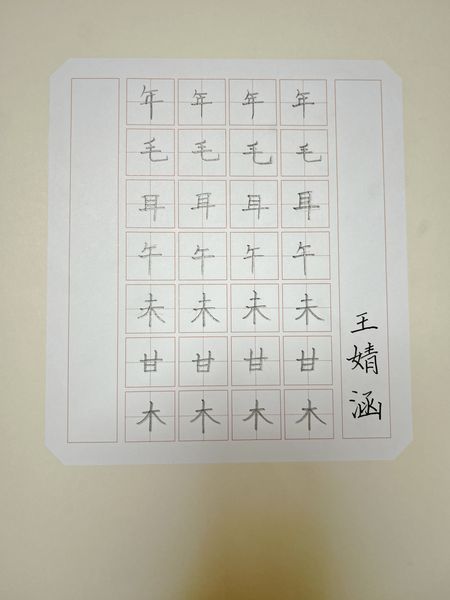 年年年年
毛毛毛毛
耳耳耳耳
午午午午
未未未未
甘甘甘甘
木木木木
王婧涵